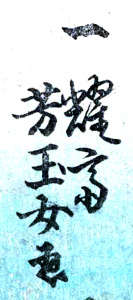 一耀斎
芳玉女画